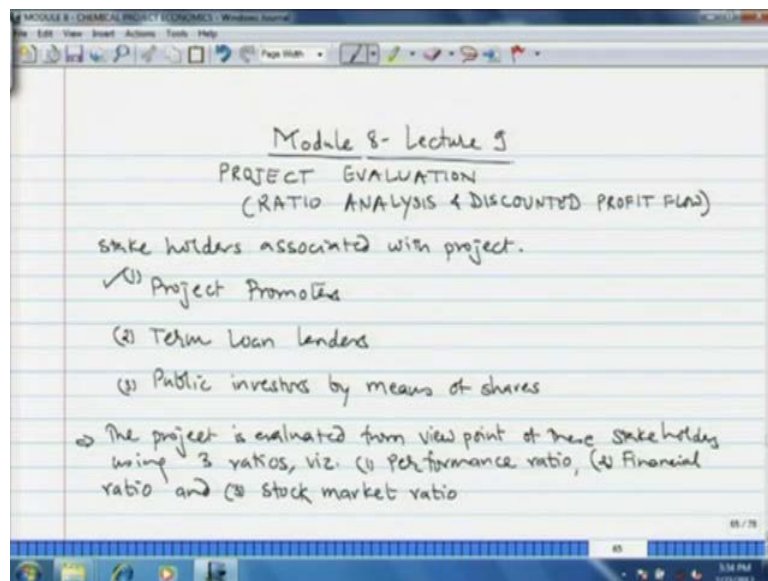 MODULE 8 - CHEMICAL PROJECT ECONOMICS - Windows Journal
File Edit View Insert Actions Tools Help
Page Width
Module 8- Lecture 9
PROJECT EVALUATION
(RATIO ANALYSIS & DISCOUNTED PROFIT FLOW)
stake holders associated with project.
✓(1) Project Promoters
(2) Term Loan lenders
(3) Public investors by means of shares
⇒ The project is evaluated from view point of these stakeholders
using 3 ratios, viz. (1) Performance ratio, (2) Financial
ratio and (3) Stock market ratio
65 / 78
65
5:34 PM